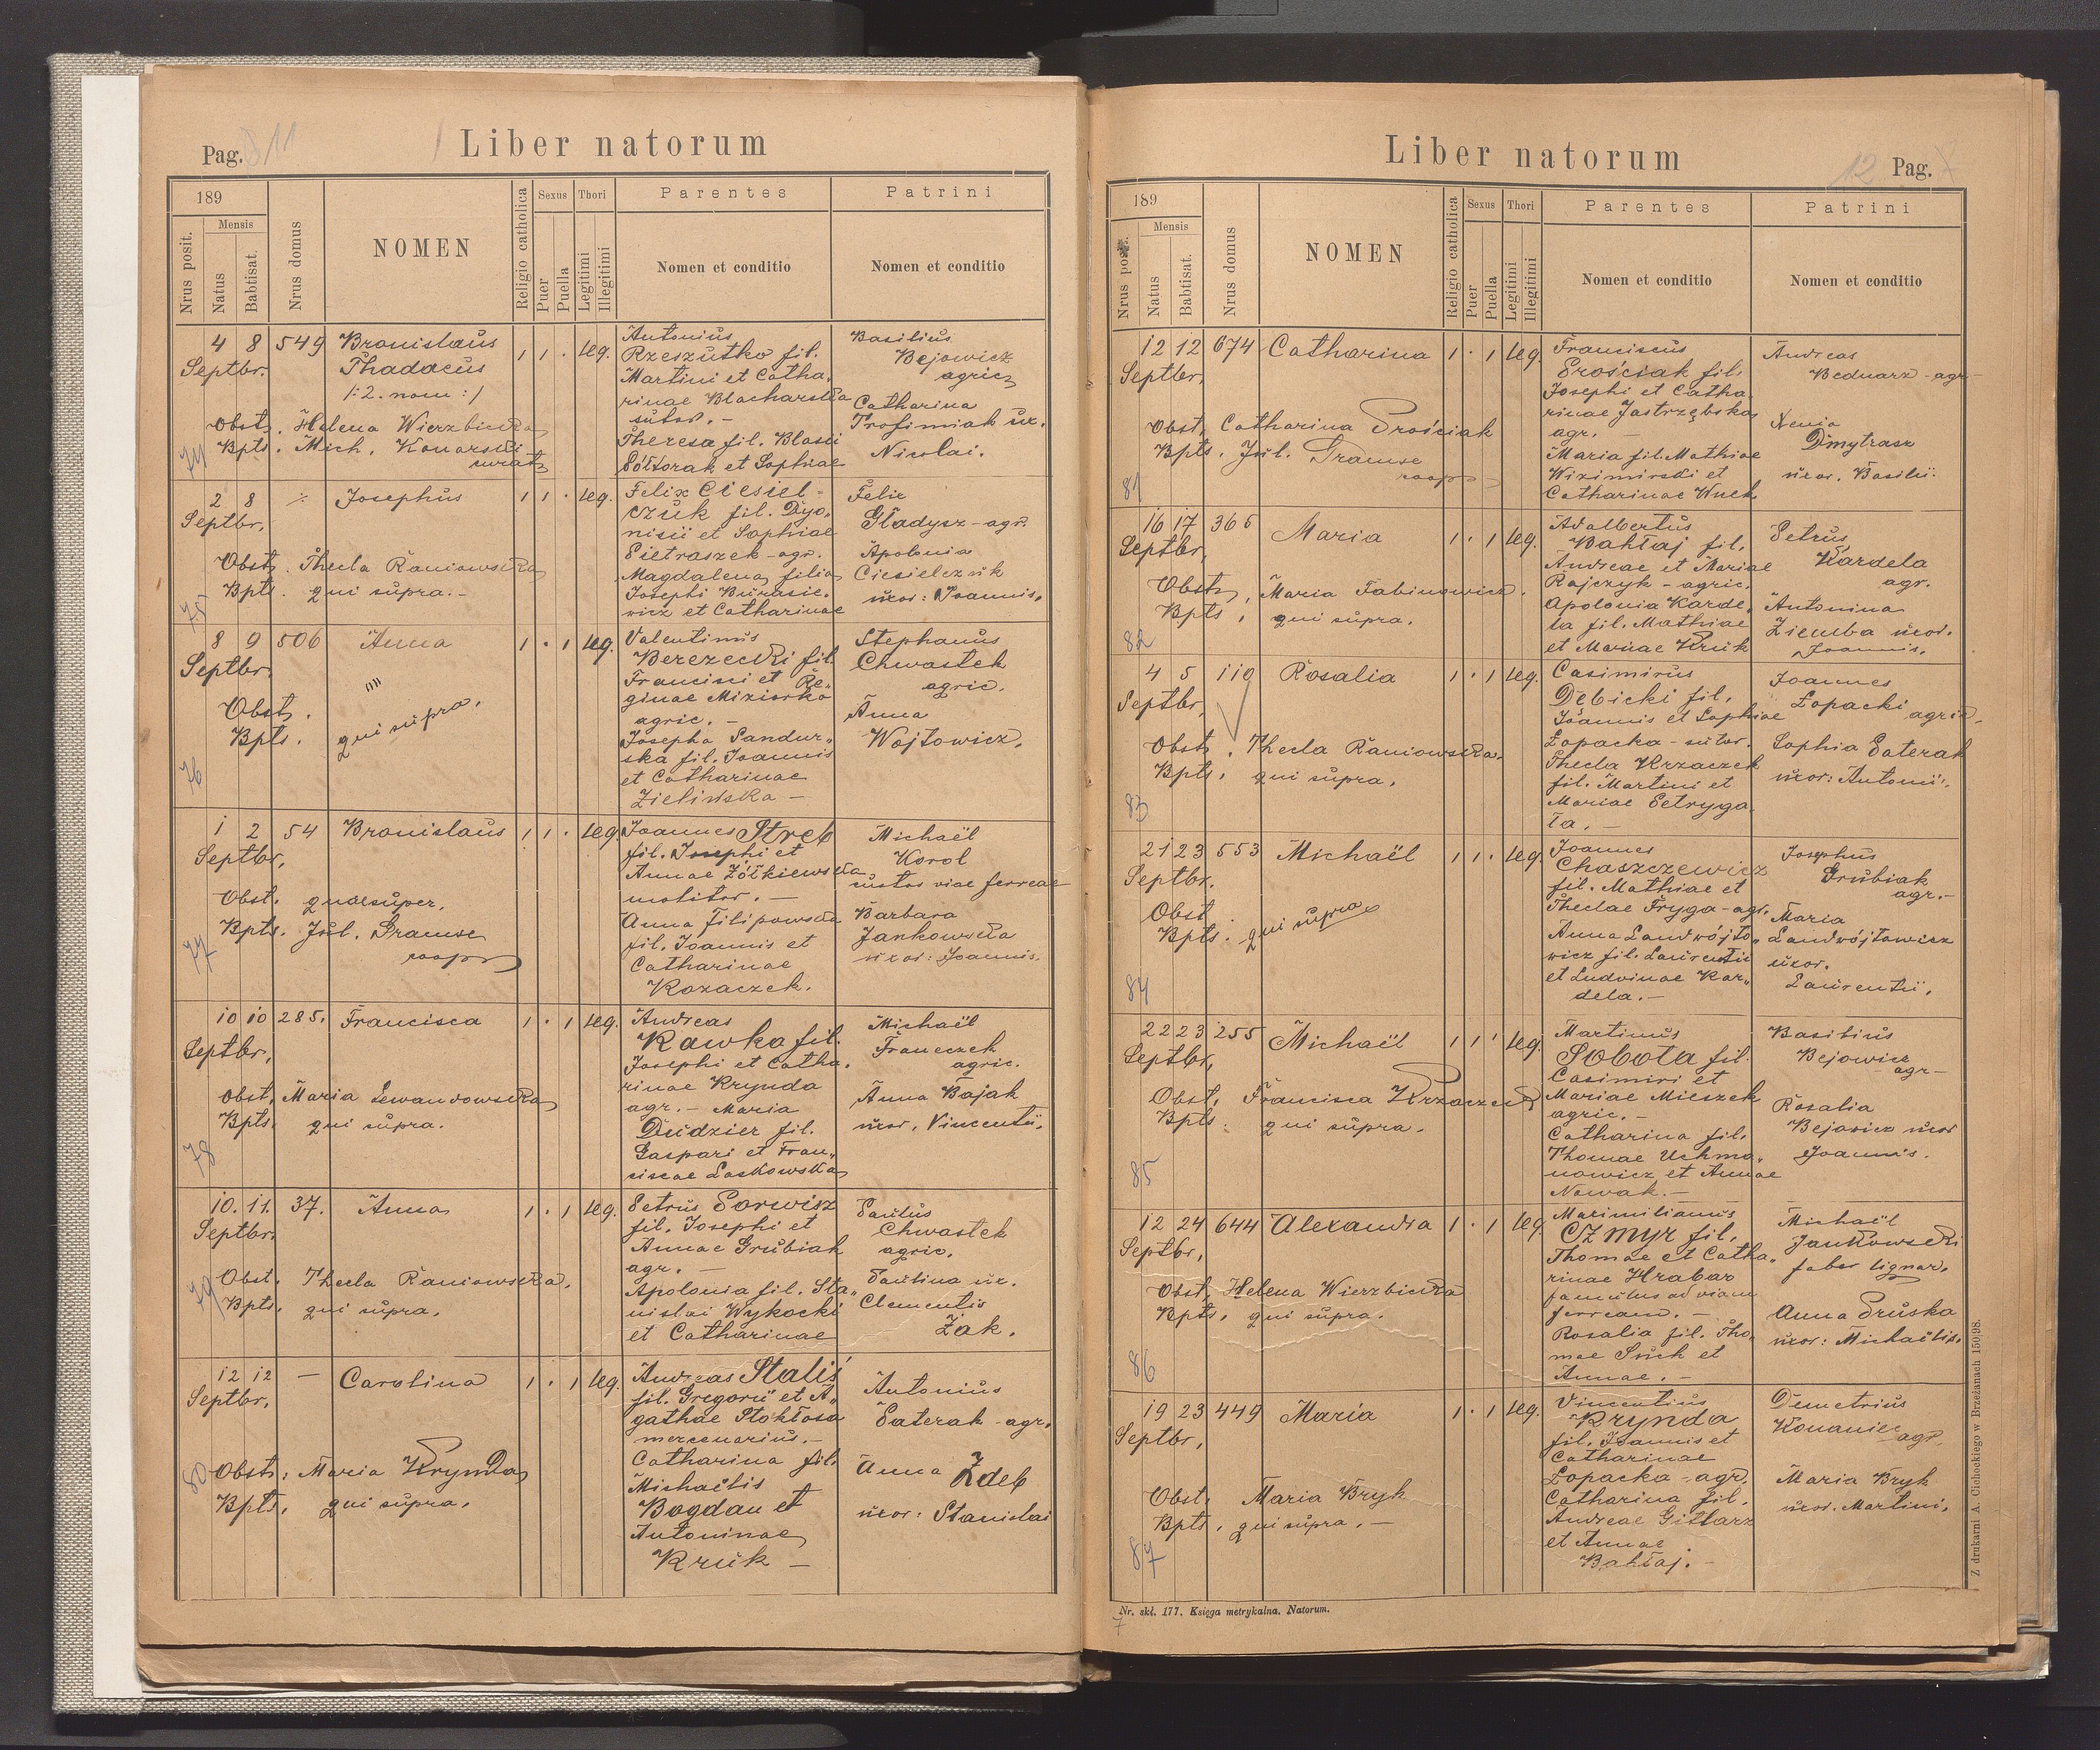 Pag. 11
Liber natorum
189
Nrus posit.
Mensis
Natus
Babtisat.
Nrus domus
NOMEN
Religio catholica
Sexus
Puer
Puella
Thori
Legitimi
Illegitimi
Parentes
Nomen et conditio
Patrini
Nomen et conditio
74
4 8 549 Bronislaus 1 1 . leg.
Septbr. Thadaeus
/:2. nom:/
Obst. Helena Wierzbicka
Bpts. Mich. Konarski
Antonius
Rzeszutko fil.
Martini et Catha,
rinae Blacharska
sutor. -
Theresa fil. Blasii
Półtorak et Sophiae
Basilius
Bejowicz
agric.
Catharina
Trofimiak ux.
Nicolai.
75
2 8 ./. Josephus 1 1 . leg.
Septbr.
Obst. Thecla Raniowska
Bpts. qui supra. -
Felix Ciesiel-
czuk fil. Dyo,
nisii et Sophiae
Pietraszek - agr.
Magdalena filia
Josephi Burasie,
wicz et Catharinae
Felix
Gładysz - agr.
Apolonia
Ciesielczuk
uxor: Joannis.
76
8 9 506 Anna 1 . 1 leg.
Septbr.
""
Obst.
Bpts. qui supra.
Valentinus
Berezecki fil.
Francisci et Re,,
ginae Miziorko
agric. -
Josepha Sandur,,
ska fil. Joannis
et Catharinae
Zielińska -
Stephanus
Chwastek
agric.
Anna
Wojtowicz.
77
1 2 54 Bronislaus 1 1 . leg.
Septbr.
Obst. quaesuper.
Bpts. Jul. Gramse
coop
Joannes Streb
fil. Josephi et
Annae Żółkiewska
molitor. -
Anna Filipowska
fil. Joannis et
Catharinae
Kozaczek.
Michaël
Korol
custos viae ferreae
Barbara
Jankowska
uxor: Joannis.
78
10 10 285. Francisca 1 . 1 leg.
Septbr.
Obst. Maria Lewandowska
Bpts. qui supra.
Andreas
Kawka fil.
Josephi et Catha.
rinae Krynda
agr. - Maria
Dudzier fil.
Gaspari et Fran,,
ciscae Laskowska
Michaël
Franeczek
agric.
Anna Bajak
uxor. Vincentii.
79
10. 11. 37. Anna 1 . 1 leg.
Septbr.
Obst. Thecla Raniowska.
Bpts. qui supra.
Petrus Porwisz
fil. Josephi et
Annae Grubiak
agr. -
Apolonia fil. Sta,,
nislai Wykocki
et Catharinae
Paulus
Chwastek
agric.
Paulina ux.
Clementis
Żak.
80
12 12 — Carolina 1 . 1 leg.
Septbr.
Obst: Maria Krynda
Bpts. qui supra.
Andreas Staliś
fil. Gregorii et A,,
gathae Stokłosa
mercenarius. -
Catharina fil.
Michaëlis
Bogdan et
Antoninae
Kruk -
Antonius
Paterak - agr.
Anna Zdeb
uxor: Stanislai
Liber natorum
12 Pag.
189
Nrus posit.
Mensis
Natus
Babtisat.
Nrus domus
NOMEN
Religio catholica
Sexus
Puer
Puella
Thori
Legitimi
Illegitimi
Parentes
Nomen et conditio
Patrini
Nomen et conditio
81
12 12 674 Catharina 1 . 1 leg.
Septbr.
Obst. Catharina Prościak
Bpts. Jul. Gramse
coop
Franciscus
Prościak fil.
Josephi et Catha
rinae Jastrzębska
agr. -
Maria fil. Mathiae
Wizimirski et
Catharinae Wnek
Andreas
Bednarz - agr -
Xenia
Dmytrasz
uxor. Basilii.
82
16 17 365 Maria 1 . 1 leg.
Septbr.
Obst. Maria Fabinowicz.
Bpts. qui supra.
Adalbertus
Bahłaj fil.
Andreae et Mariae
Rajczyk - agric.
Apolonia Karde,
la fil. Mathiae
et Mariae Kruk
Petrus
Kardela
agr.
Antonina
Ziemba uxor.
Joannis.
83
4 5 110 Rosalia 1 . 1 leg.
Septbr.
Obst. Thecla Raniowska.
Bpts. qui supra.
Casimirus
Debicki fil.
Joannis et Sophiae
Łopacka - sutor.
Thecla Krzaczek
fil. Martini et
Mariae Petryga
ła. -
Joannes
Łopacki
agric.
Sophia Paterak
uxor: Antonii.
84
21 23 553 Michaël 1 1 . leg.
Septbr.
Obst.
Bpts. qui supra
Joannes
Chaszczewicz
fil. Mathiae et
Theclae Fryga - agr.
Anna Landwójto,,
wicz fil. Laurentii
et Ludvinae Kar,,
dela. -
Josephus
Grubiak
agr. -
Maria
Landwójtowicz
uxor.
Laurentii.
85
22 23 255 Michaël 1 1 . leg.
Septbr.
Obst. Francisca Krzaczek
Bpts. qui supra.
Martinus
Sobota fil.
Casimiri et
Mariae Mieszek
agric. -
Catharina fil.
Thomae Uchma,
nowicz et Annae
Nowak. -
Basilius
Bejowicz
agr -
Rosalia
Bejowicz uxor
Joannis.
86
12 24 644 Alexandra 1 . 1 leg.
Septbr.
Obst. Helena Wierzbicka
Bpts. qui supra.
Maximilianus
Czmyr fil.
Thomae et Catha.
rinae Hrabar
famulus ad viam
ferream. -
Rosalia fil. Tho,
mae Such et
Annae. -
Michaël
Jankowski
faber lignar.
Anna Pruska
uxor: Michaëlis.
87
19 23 449 Maria 1 . 1 leg.
Septbr.
Obst. Maria Bryk
Bpts. qui supra. -
Vincentius
Krynda
fil. Joannis et
Catharinae
Łopacka - agr.
Catharina fil.
Andreae Gittarz
et Annae
Bahłaj. -
Demetrius
Konaniec
agr.
Maria Bryk
uxor. Martini.
Nr. skł. 177. Księga metrykalna. Natorum.
7
Z drukarni A. Cichockiego w Brzeżanach 150|98.